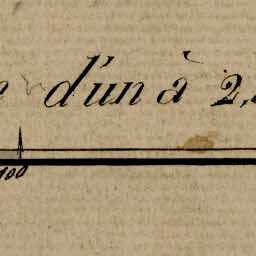 d'un à 2,
100